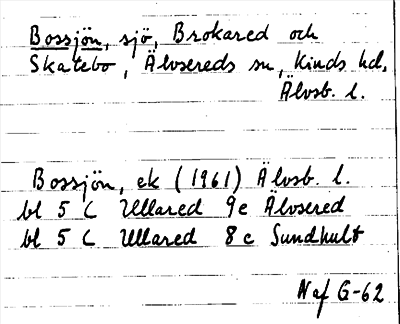 Bossjön, sjö, Brokared och
Skatebo, Älvsereds sn, Kinds hd,
Älvsb. l.
Bossjön, ek (1961) Älvsb. l.
bl 5 C Ullared 9e Älvsered
bl 5 C Ullared 8c Sundhult
Naf G-62